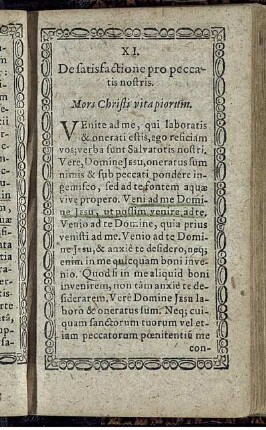 XI.
De satisfactione pro pecca-
tis nostris.
Mors Christi vita piorum.
VEnite ad me, qui laboratis
& onerati estis, ego reficiam
vos; verba sunt Salvatoris nostri.
Vere, Domine Jesu, oneratus sum
nimis & sub peccati pondere in-
gemisco, sed ad te fontem aquæ
vivæ propero. Veni ad me Domi-
ne Jesu, ut possim venire ad te.
Venio ad te Domine, quia prius
venisti ad me. Venio ad te Domi-
ne Jesu, & anxiè te desidero, neq;
enim in me quicquam boni inve-
nio. Quod si in me aliquid boni
invenirem, non tàm anxiè te de-
siderarem. Verè Domine Jesu la-
boro & oneratus sum. Neq; cui-
quam sanctorum tuorum vel et-
iam peccatorum pœnitentiũ me
con-